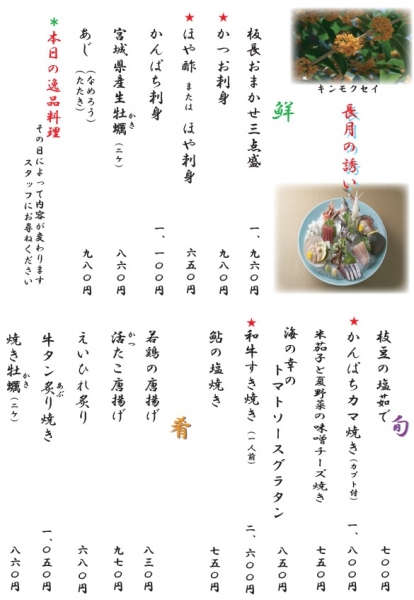 キンモクセイ
長月の誘い
鮮
板長おまかせ三点盛 一、九六〇円
★かつお刺身 九八〇円
★ほや酢 または ほや刺身 六五〇円
かんぱち刺身 一、一〇〇円
宮城県産生牡蠣(二ケ) 八六〇円
かき
あじ (なめろう)(たたき) 九八〇円
*本日の逸品料理
その日によって内容が変わります
スタッフにお尋ねください
旬
枝豆の塩茹で 七〇〇円
★かんぱちカマ焼き(カブト付) 一、八〇〇円
米茄子と夏野菜の味噌チーズ焼き 七五〇円
海の幸の
トマトソースグラタン 八五〇円
★和牛すき焼き(一人前) 二、六〇〇円
鮎の塩焼き 七五〇円
肴
若鶏の唐揚げ 八三〇円
活たこ唐揚げ 九七〇円
かつ
えいひれ炙り 六八〇円
牛タン炙り焼き 一、〇五〇円
あぶ
焼き牡蠣(二ケ) 八六〇円
かき